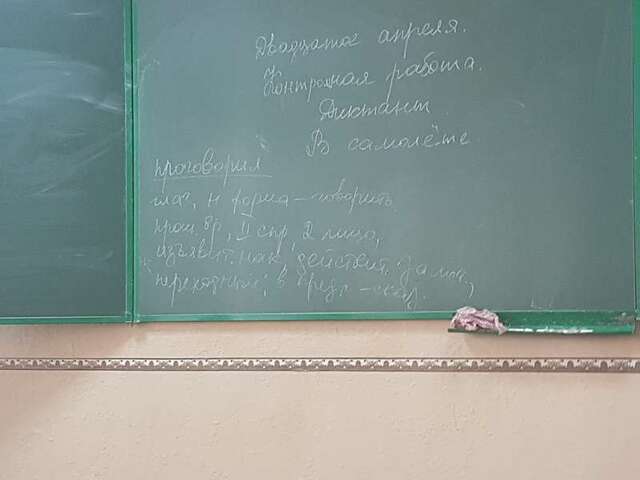 Двадцатое апреля.
Контрольная работа.
Диктант
В самолёте.
проговорил
глаг, н форма – говорить
прош. вр, II спр, 2 лица,
изъявит. нак действит.
переходный; в предл – сказ.